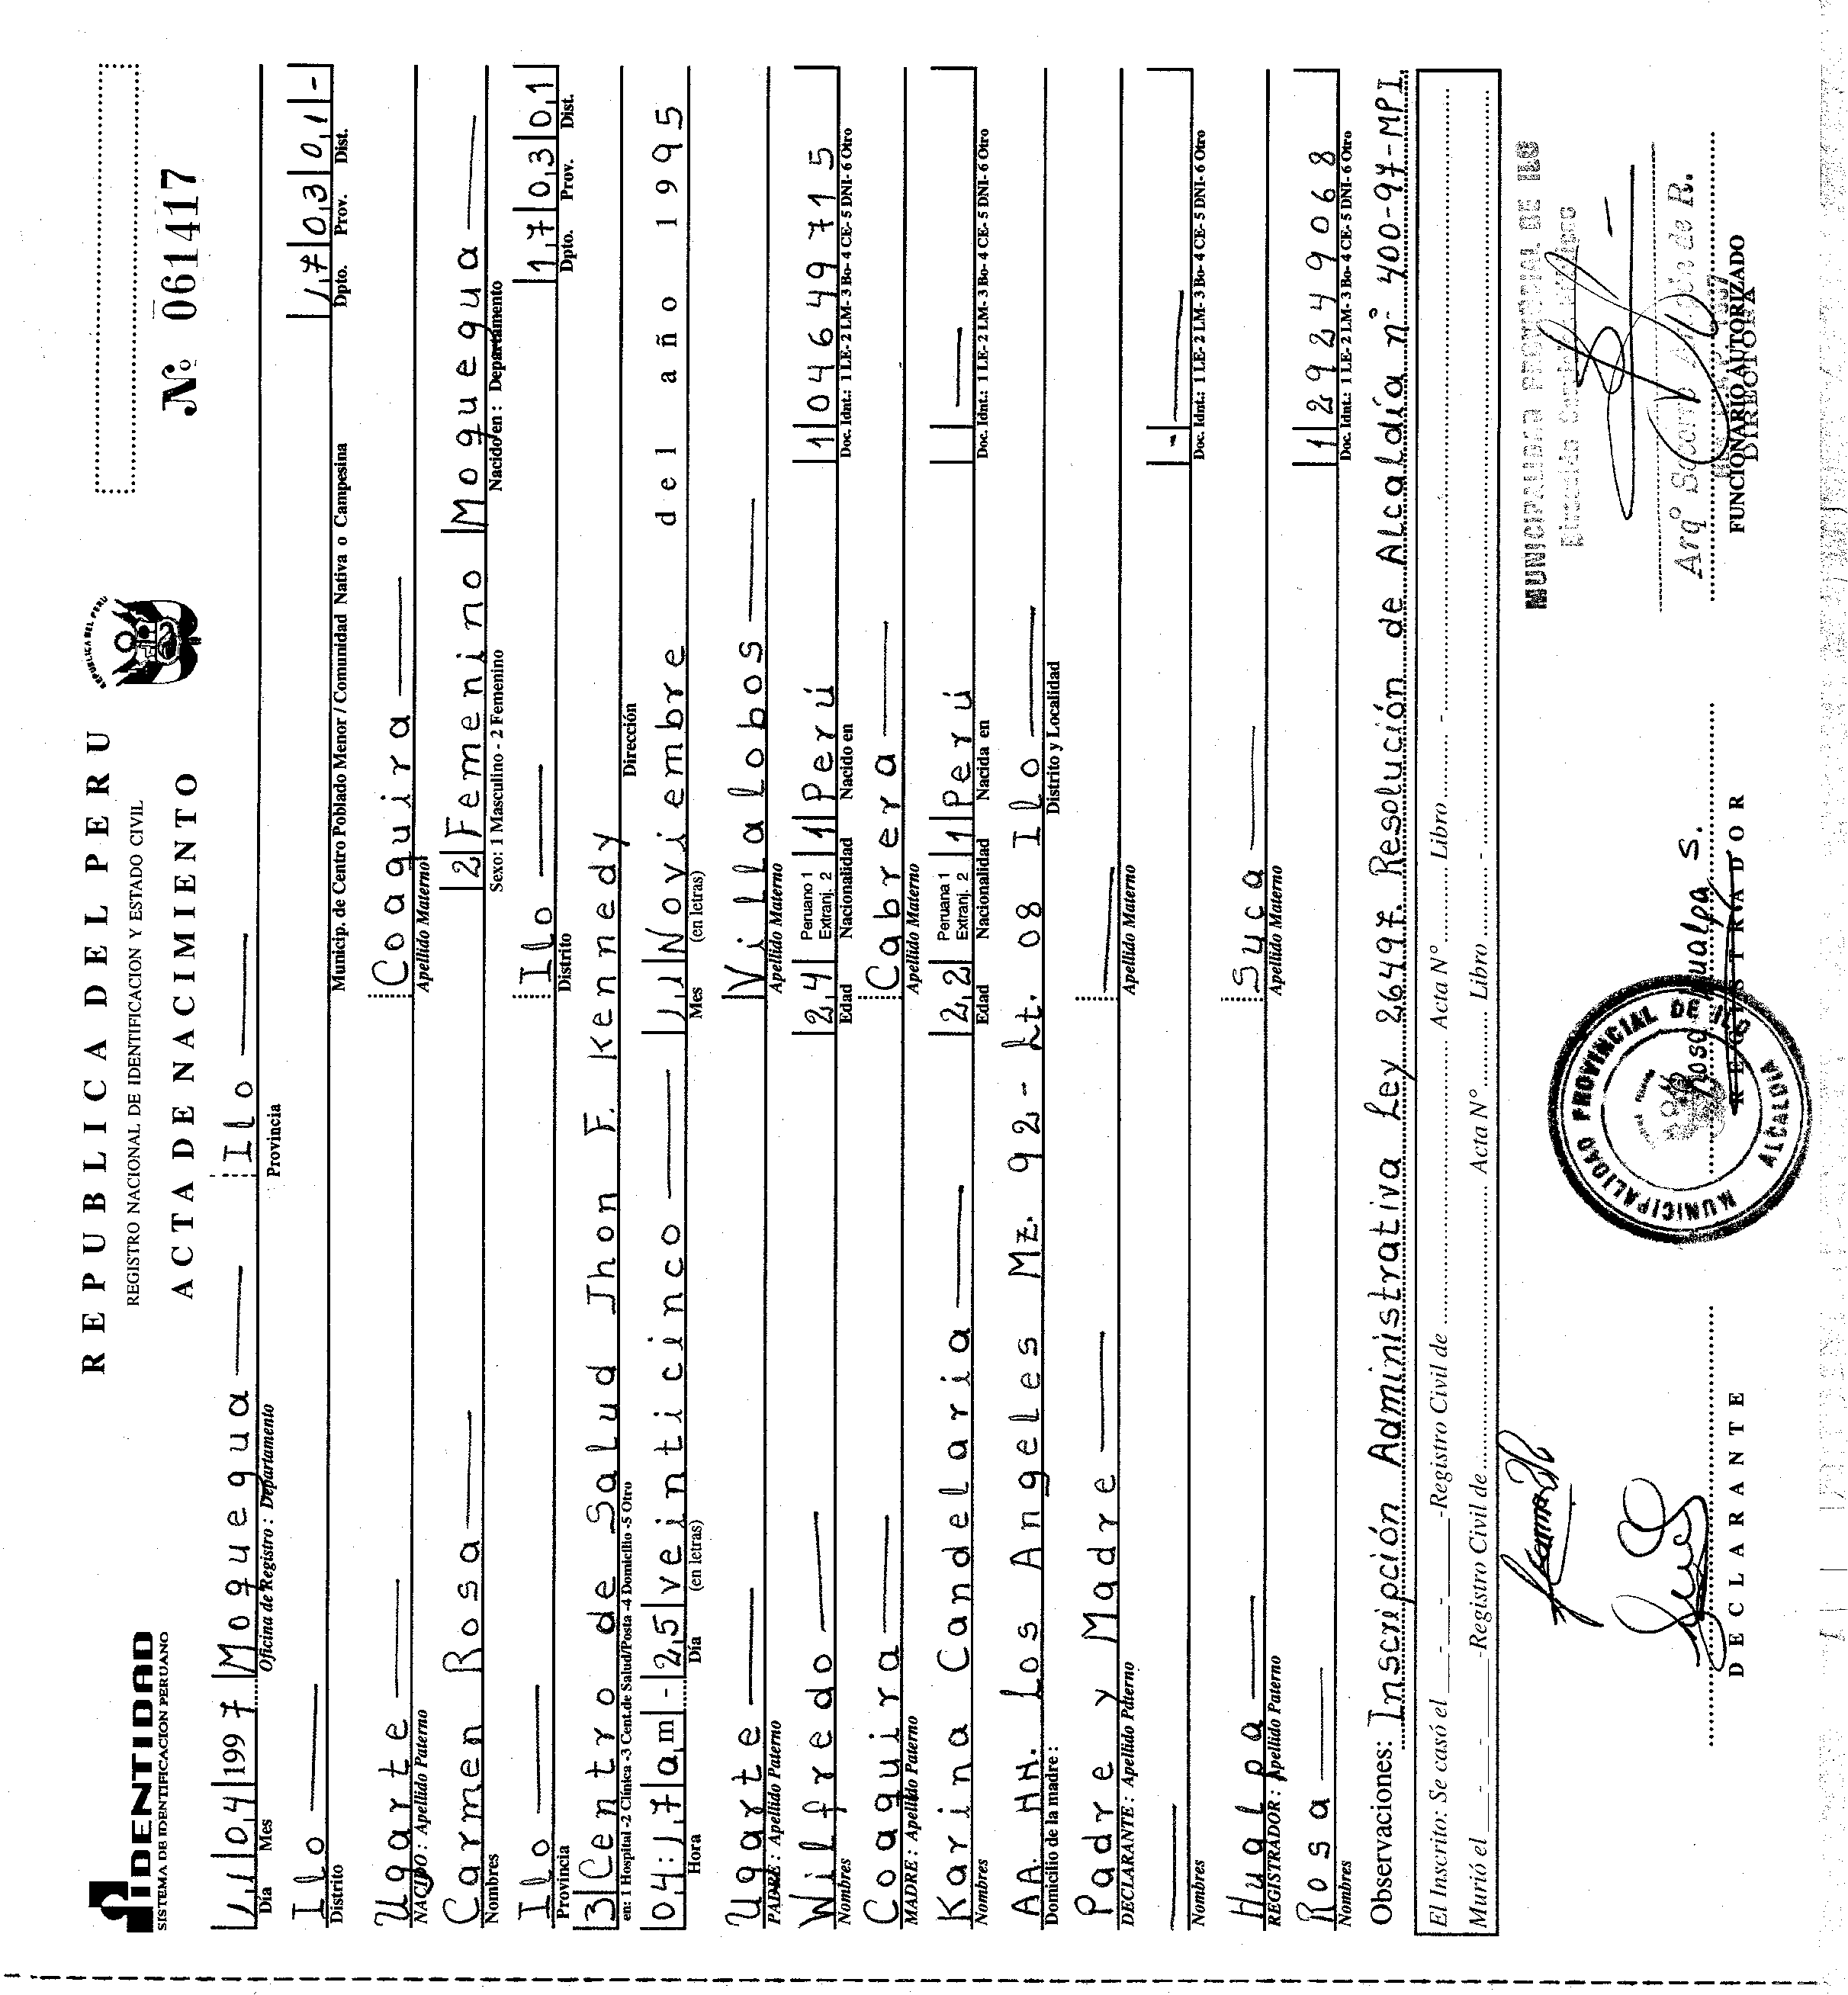 IDENTIDAD
SISTEMA DE IDENTIFICACION PERUANO
REPUBLICA DEL PERU
REGISTRO NACIONAL DE IDENTIFICACION Y ESTADO CIVIL
ACTA DE NACIMIENTO
REPUBLICA DEL PERU
Nº 061417
1,1 | 0,4 | 1997 | Moquegua — Ilo —
Día Mes Oficina de Registro : Departamento Provincia
Ilo — 1,7 | 0,3 | 0,1 | -
Distrito Municip. de Centro Poblado Menor / Comunidad Nativa o Campesina Dpto. Prov. Dist.
Ugarte — Coaquira —
NACIDO : Apellido Paterno Apellido Materno
Carmen Rosa — 2 Femenino Moquegua —
Nombres Sexo: 1 Masculino - 2 Femenino Nacido en : Departamento
Ilo — Ilo — 1,7 | 0,3 | 0,1
Provincia Distrito Dpto. Prov. Dist.
3 Centro de Salud Jhon F. Kennedy
en: 1 Hospital -2 Clínica -3 Cent.de Salud/Posta -4 Domicilio -5 Otro Dirección
0,4:1,7 a,m - 2,5 veinticinco — 1,1 Noviembre del año 1995
Hora Día (en letras) Mes (en letras)
Ugarte — Villalobos —
PADRE : Apellido Paterno Apellido Materno
Wilfredo — 2,4 Peruano 1 Extranj. 2 1 Perú 1 04649715
Nombres Edad Nacionalidad Nacido en Doc. Idnt.: 1 LE- 2 LM- 3 Bo- 4 CE- 5 DNI- 6 Otro
Coaquira — Cabrera —
MADRE : Apellido Paterno Apellido Materno
Karina Candelaria — 2,2 Peruana 1 Extranj. 2 1 Perú —
Nombres Edad Nacionalidad Nacida en Doc. Idnt.: 1 LE- 2 LM- 3 Bo- 4 CE- 5 DNI- 6 Otro
AA. HH. Los Angeles Mz. 92- Lt. 08 Ilo —
Domicilio de la madre : Distrito y Localidad
Padre y Madre — —
DECLARANTE : Apellido Paterno Apellido Materno
— - —
Nombres Doc. Idnt.: 1 LE- 2 LM- 3 Bo- 4 CE- 5 DNI- 6 Otro
Hualpa — Suca —
REGISTRADOR : Apellido Paterno Apellido Materno
Rosa — 1 29249068
Nombres Doc. Idnt.: 1 LE- 2 LM- 3 Bo- 4 CE- 5 DNI- 6 Otro
Observaciones: Inscripción Administrativa Ley 26497. Resolución de Alcaldía nº 400-97-MPI
El Inscrito: Se casó el - - -Registro Civil de Acta Nº Libro -
Murió el - - -Registro Civil de Acta Nº Libro -
MUNICIPALIDAD PROVINCIAL DE ILO
MUNICIPALIDAD PROVINCIAL DE ILO
ALCALDIA
Rosa Hualpa S.
DECLARANTE
REGISTRADOR
FUNCIONARIO AUTORIZADO
DIRECTORA